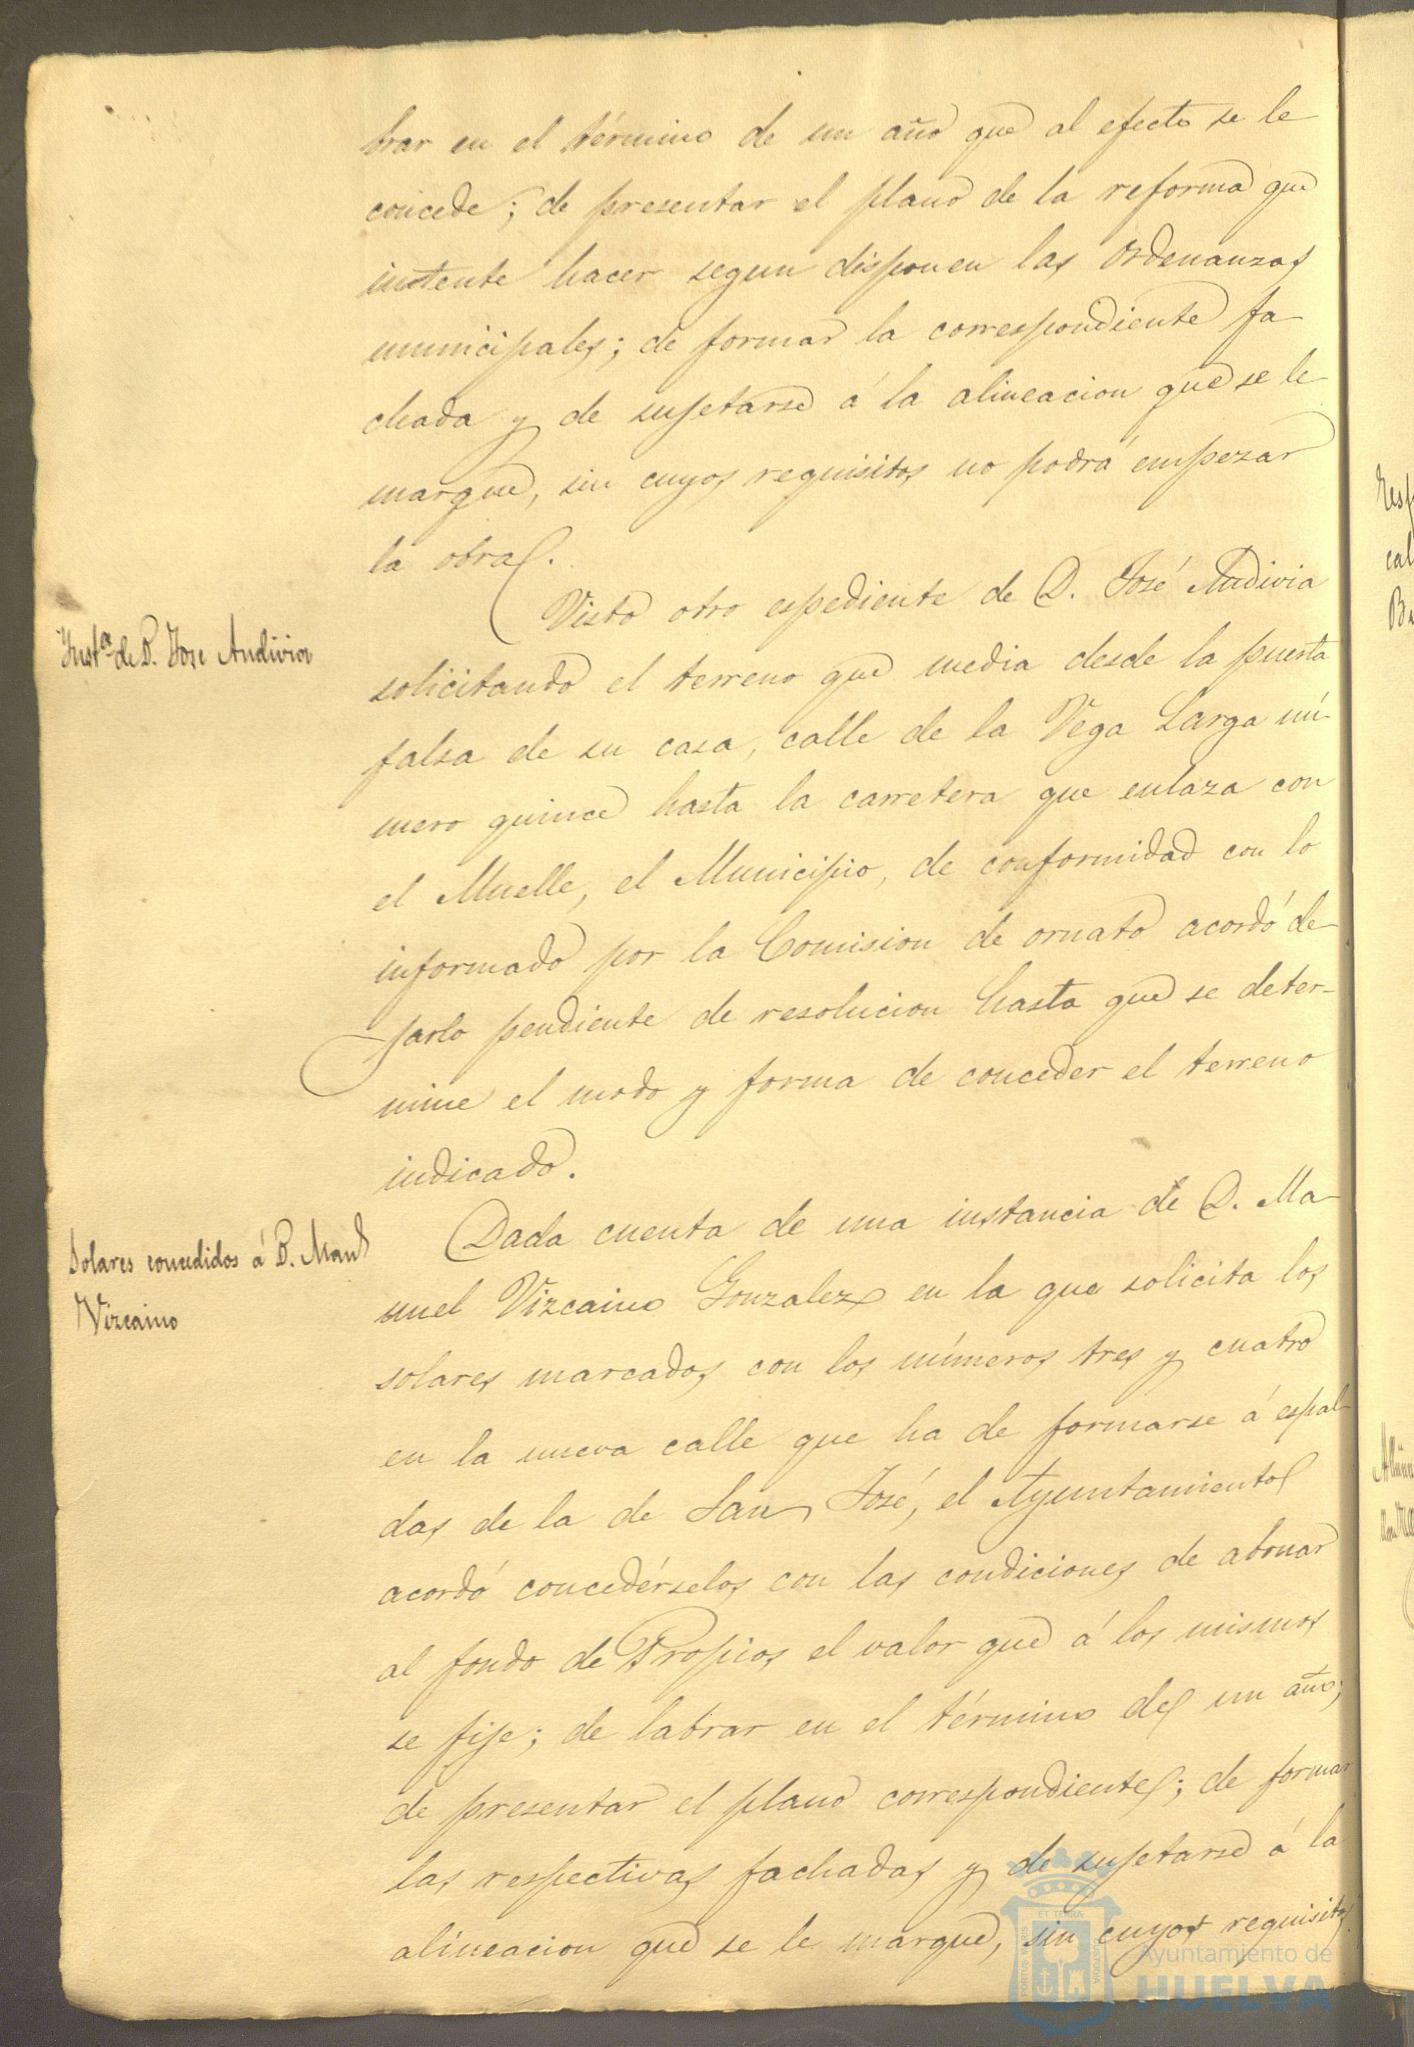 brar en el término de un año que al efecto se le
concede; de presentar el plano de la reforma que
intente hacer segun disponen las Ordenanzas
municipales; de formar la correspondiente fa
chada y de sujetarse á la alineacion que se le
marque, sin cuyos requisitos no podrá empezar
la obra.
Inst.ª de D. Jose Andivia
Visto otro espediente de D. José Andivia
solicitando el terreno que media desde la puerta
falsa de su casa, calle de la Vega Larga nú
mero quince hasta la carretera que enlaza con
el Muelle, el Municipio, de conformidad con lo
informado por la Comision de ornato acordó de
jarlo pendiente de resolucion hasta que se deter-
mine el modo y forma de conceder el terreno
indicado.
Solares concedidos á D. Manl
Vizcaino
Dada cuenta de una instancia de D. Ma
nuel Vizcaino Gonzalez en la que solicita los
solares marcados con los números tres y cuatro
en la nueva calle que ha de formarse á espal
das de la de San José, el Ayuntamiento
acordó concedérselos con las condiciones de abonar
al fondo de Propios el valor que á los mismos
se fije; de labrar en el término de un año;
de presentar el plano correspondiente; de formar
las respectivas fachadas y de sujetarse á la
alineacion que se le marque, sin cuyos requisitos
Ayuntamiento de
HUELVA